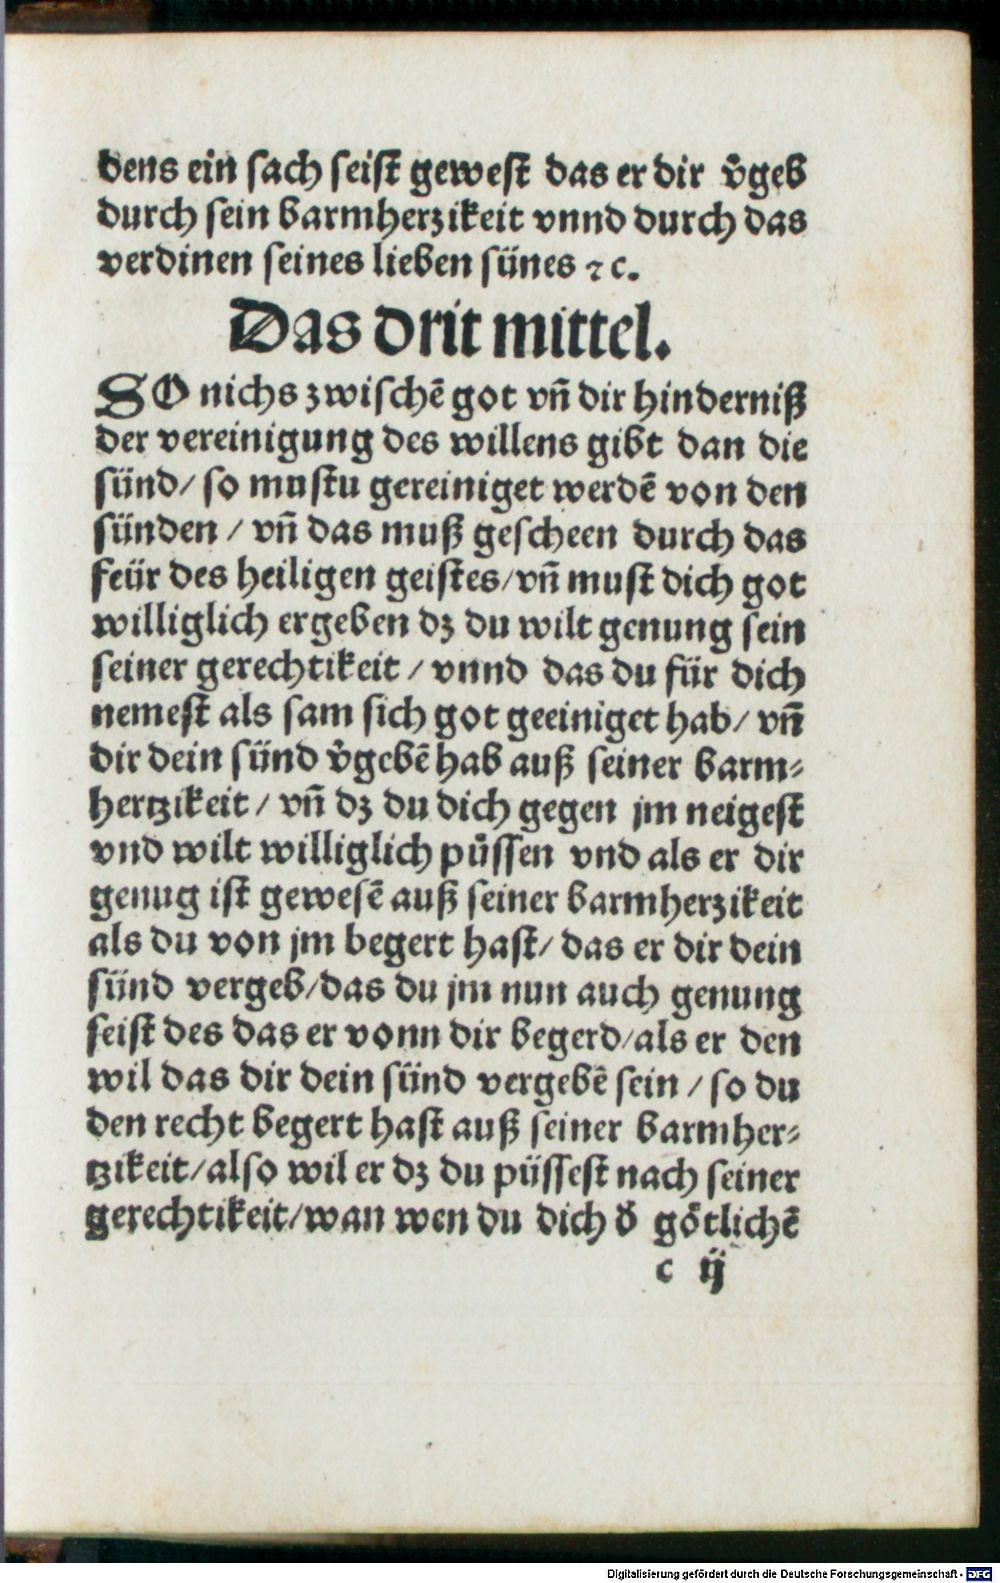 dens ein sach seist gewest das er dir v̄geb
durch sein barmherzikeit vnnd durch das
verdinen seines lieben sünes ⁊c.
Das drit mittel.
SO nichs zwischē got vn̄ dir hinderniß
der vereinigung des willens gibt dan die
sünd/ so mustu gereiniget werdē von den
sünden / vn̄ das muß gescheen durch das
feür des heiligen geistes/vn̄ must dich got
williglich ergeben dz du wilt genung sein
seiner gerechtikeit / vnnd das du für dich
nemest als sam sich got geeiniget hab/ vn̄
dir dein sünd v̄gebē hab auß seiner barm⸗
hertzikeit / vn̄ dz du dich gegen jm neigest
vnd wilt williglich püssen vnd als er dir
genug ist gewesē auß seiner barmherzikeit
als du von jm begert hast/ das er dir dein
sünd vergeb/das du jm nun auch genung
seist des das er vonn dir begerd/als er den
wil das dir dein sünd vergebē sein / so du
den recht begert hast auß seiner barmher⸗
tzikeit/also wil er dz du püssest nach seiner
gerechtikeit/wan wen du dich d̄ götlichē
c ij
Digitalisierung gefördert durch die Deutsche Forschungsgemeinschaft - DFG